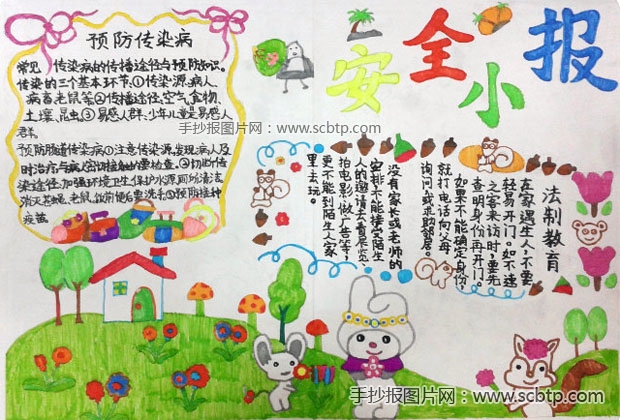 安全小报
预防传染病
常见 传染病的传播途径与预防知识。
传染的三个基本环节。①传染源:病人、
病畜老鼠等②传播途径:空气、食物、
土壤、昆虫③易感人群:少年儿童是易感人
群。
预防肠道传染病①注意传染源,发现病人及
时治疗与病人密切接触的要检查。②切断传
染途径,加强环境卫生,保护水源厕所清洁,
消灭苍蝇、老鼠、饭前便后要洗手③预防接种
疫苗
法制教育
在家遇生人,不要
轻易开门。如不速
之客来访时,要先
查明身份再开门。
如果不能确定身份,
就打电话向父母
询问或求助邻居。
没有家长或老师的
安排不能接受陌生
人的邀请去看展览
拍电影、做广告等,
更不能到陌生人家
里去玩。
手抄报图片网:www.scbtp.com
手抄报图片网:www.scbtp.com